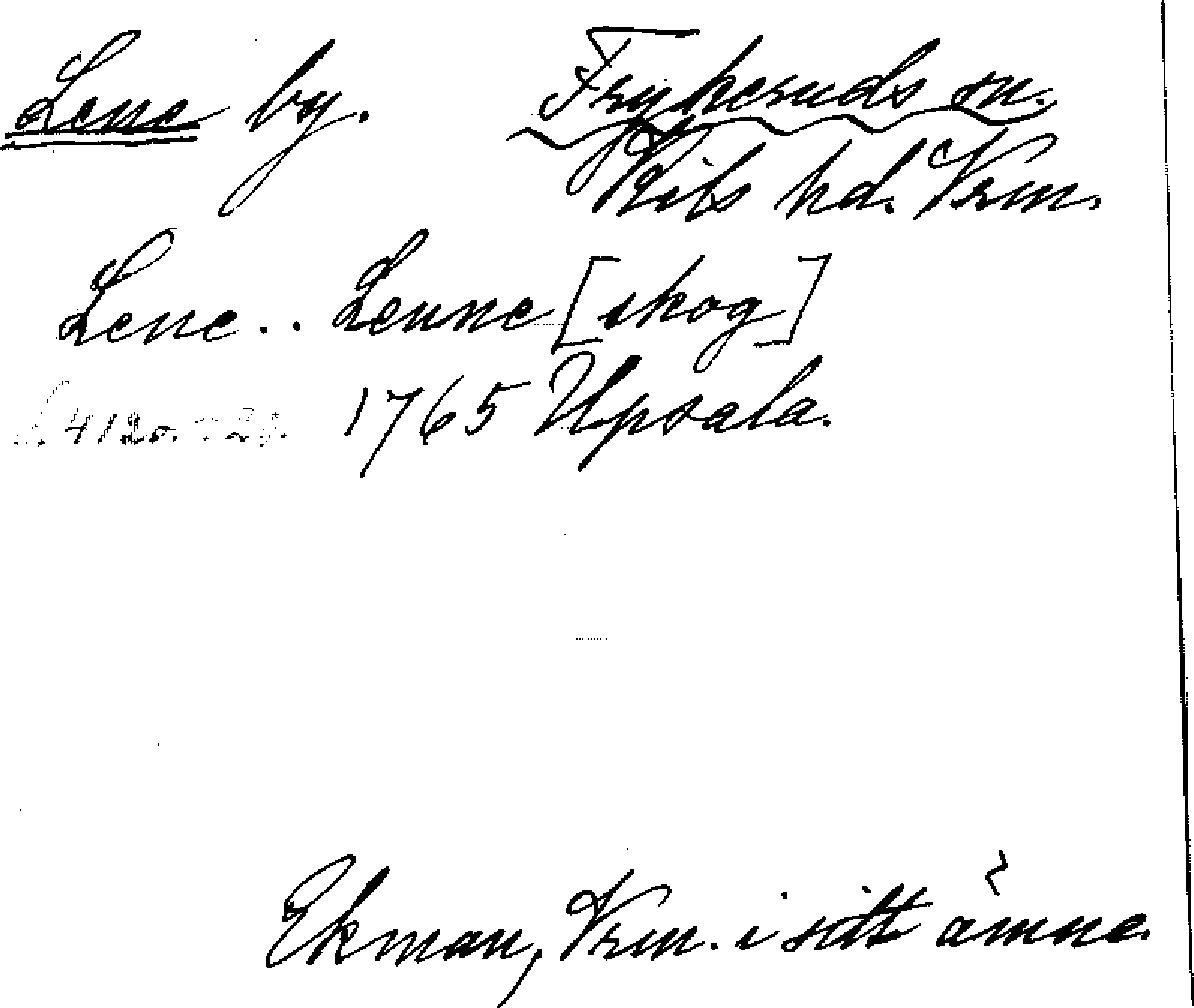 Lene by. Frykeruds sn.
Kils hd. Vrm.
Lene.. Lenne [skog]
1765 Upsala.
Ekman, Vrm. i sitt ämne.